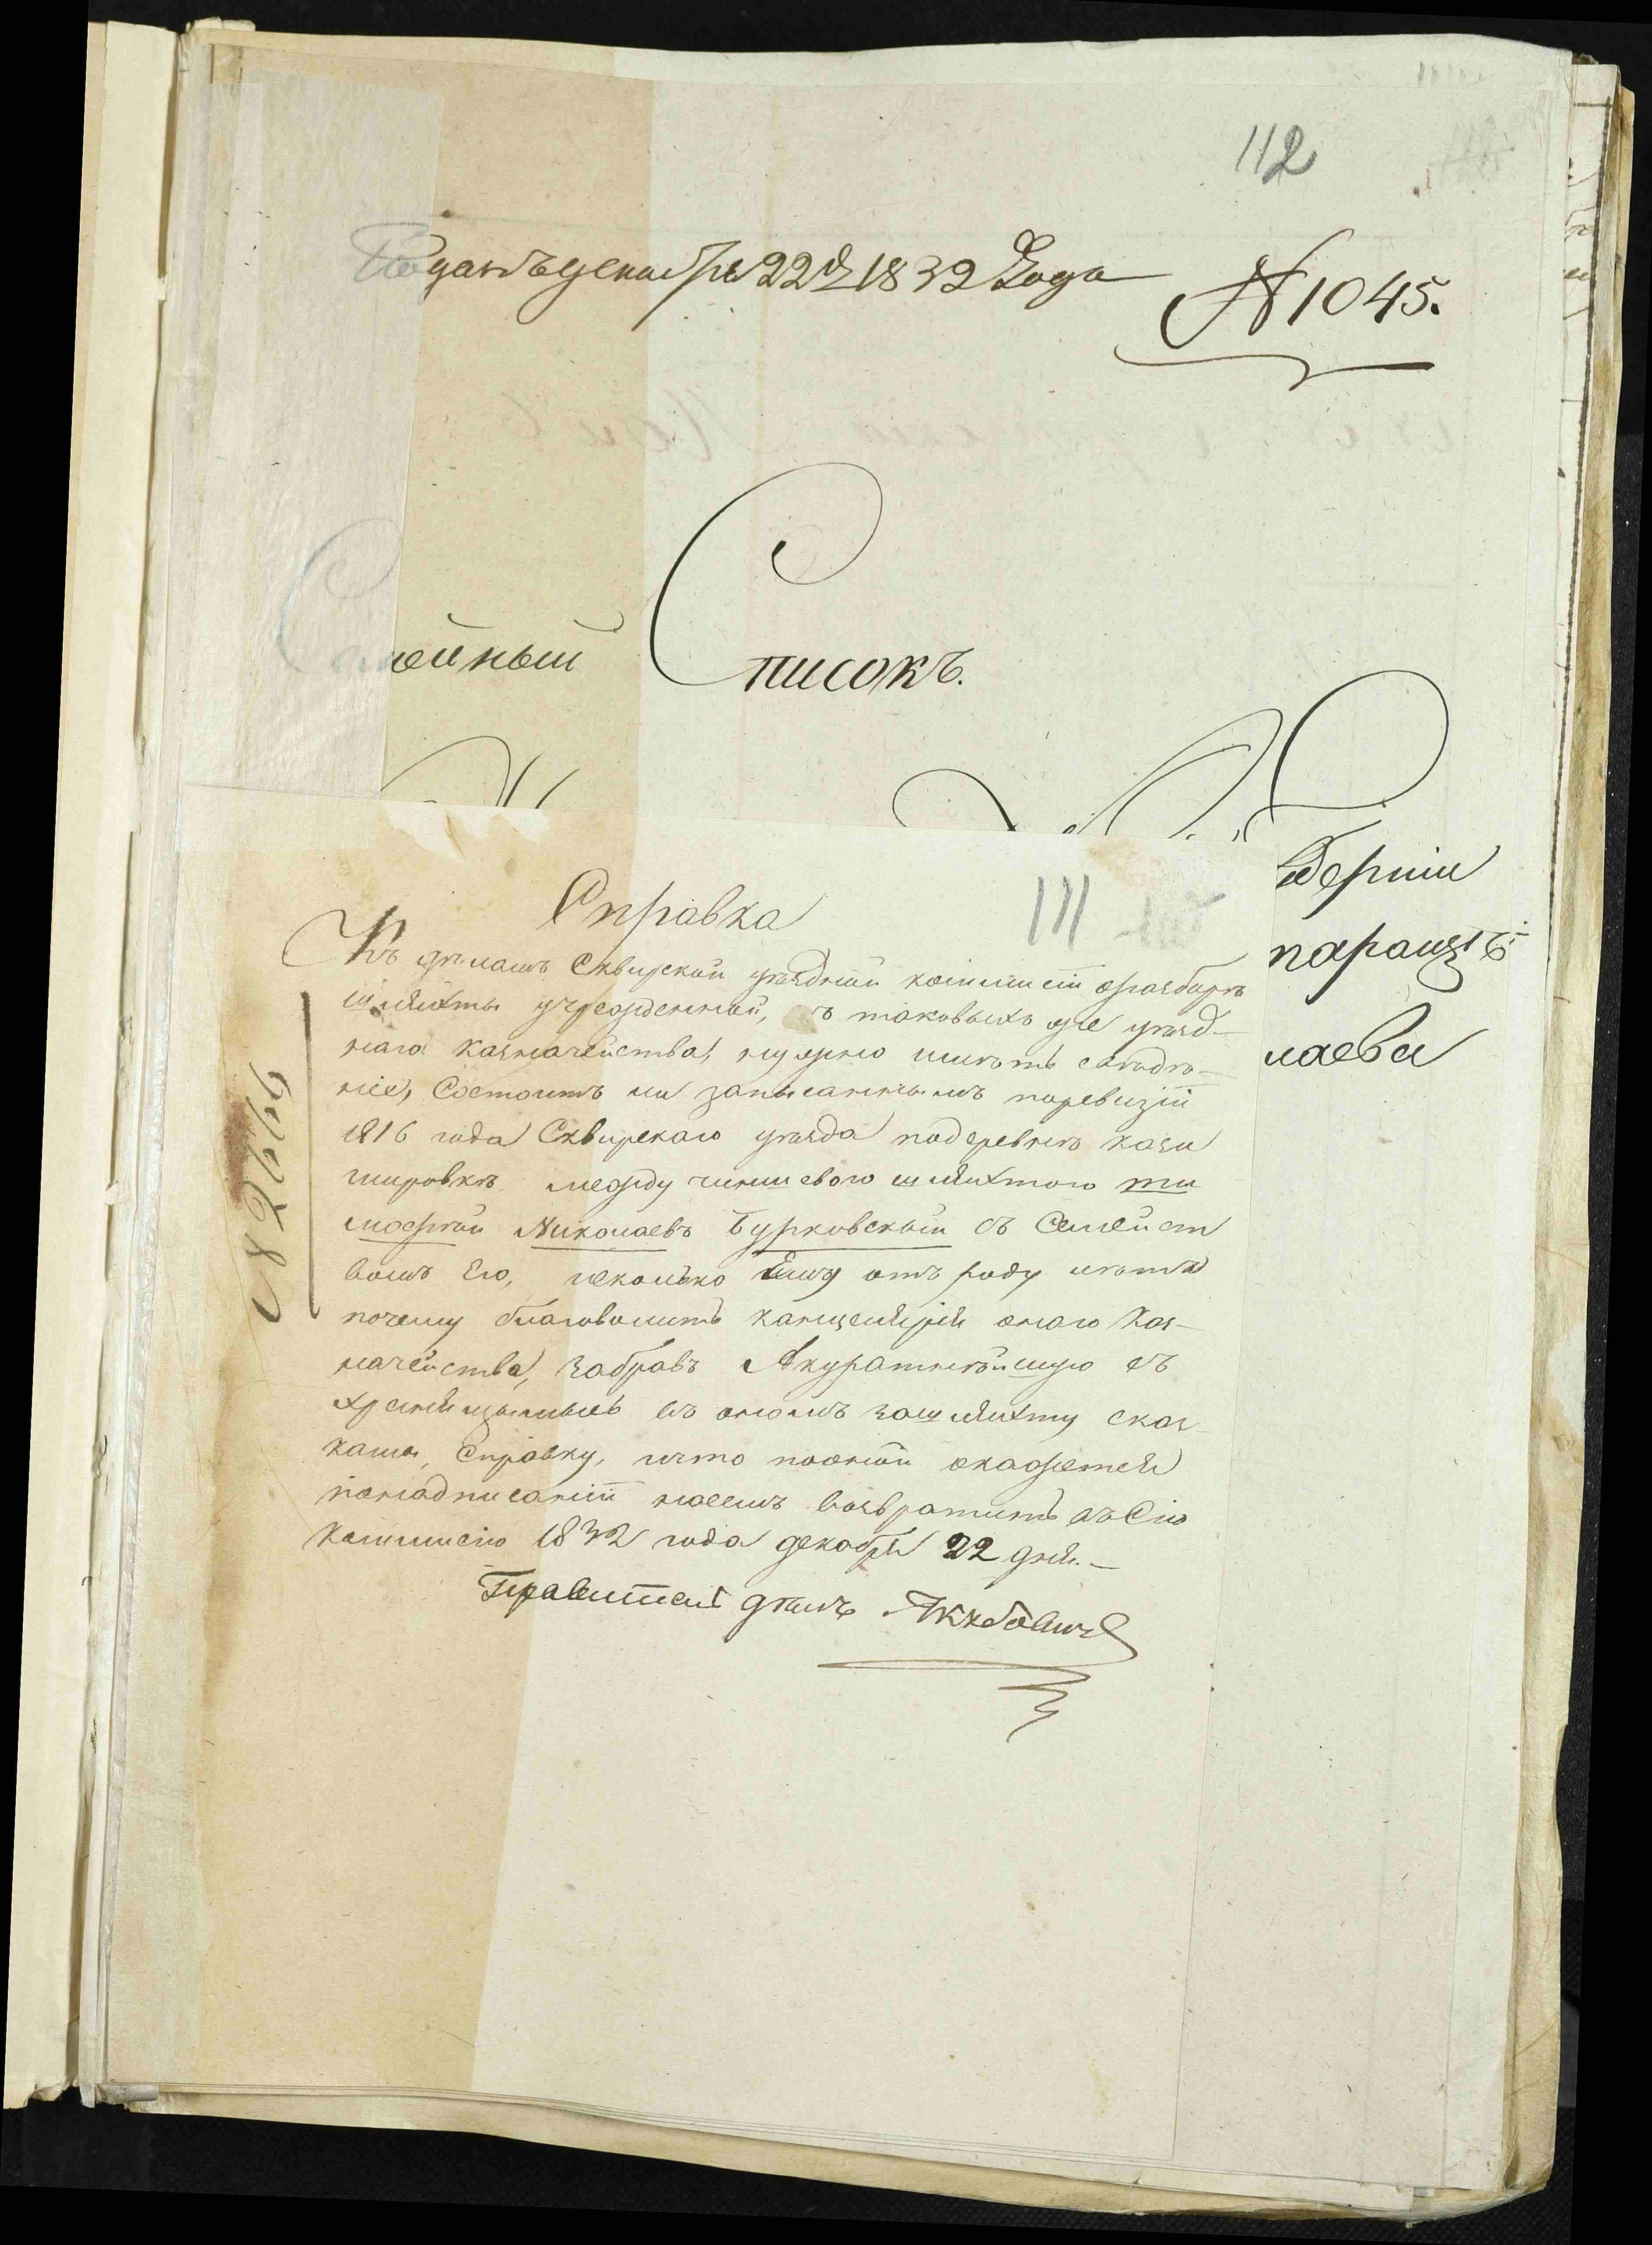 112
Поданъ декабря 22 д 1832 Года
N 1045.
Семейный Списокъ.
берніи
лаева
111
Справка
Къ дѣламъ Сквирской уѣздной комиссіи оразборѣ
шляхты учрежденной, съ таковыхъ же уѣзд-
наго казначейства, нужно имѣть свѣдѣ-
ніе, Состоитъ ли записаннымъ поревизіи
1816 года Сквирскаго уѣзда подеревнѣ кази
мировкѣ между чиншевою шляхтою ти
мофѣй Николаевъ Бурковскый съ Семейст
вомъ Его, исколько Ему отъ роду лѣтъ
почему благоволитъ канцелярія онаго Каз-
начейства, забравъ Акуратнѣйшую съ
хранящыхся въ ономъ зашляхту сказ-
камы, Справку, ичто пооной окажется
понадписаніи насемъ возвратить въ Сію
Комиссію 1832 года декабря 22 дня.—
Правитель дѣлъ Якубовичъ